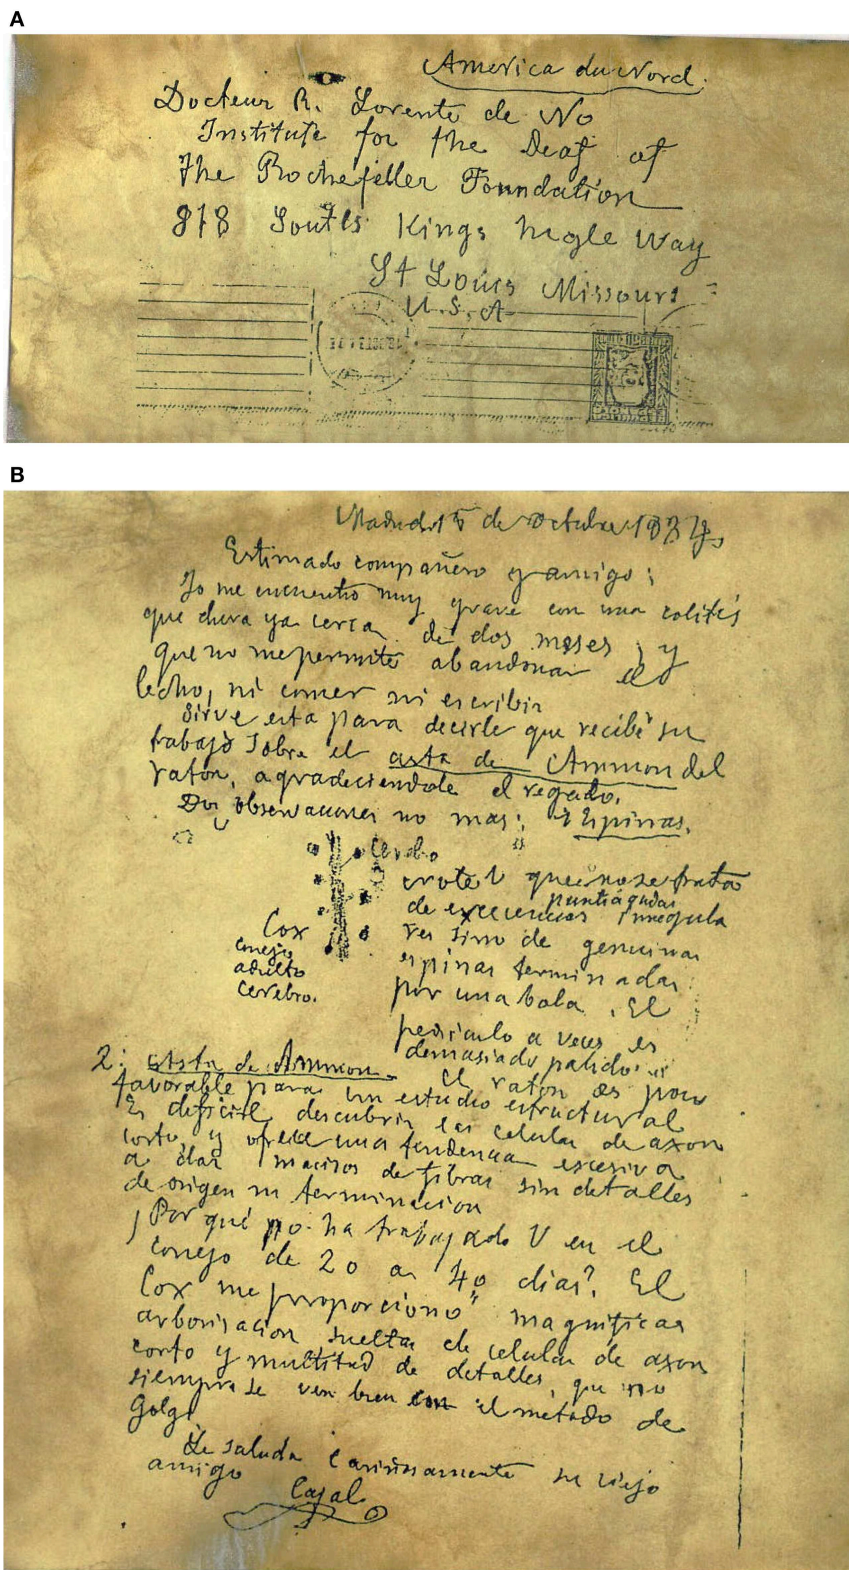 A
America du Nord.
Docteur R. Lorente de No
Institute for the Deaf of
the Rochefeller Foundation
818 South Kings higle Way
St Louis Missouri
U.S.A
B
Madrid 15 de octubre 1934
Estimado compañero y amigo:
Yo me encuentro muy grave con una colitis
que dura ya cerca de dos meses, y
que no me permite abandonar el
lecho, ni comer ni escribir
Sirve esta para decirle que recibí su
trabajo sobre el asta de Ammon del
raton, agradeciendole el regalo.
Dos observaciones no mas: Espinas.
Cerebro
note V que no se trata
puntiagudas
de excrecencias irregula
res sino de genuinas
espinas terminadas
por una bola. El
pediculo a veces es
demasiado palido
Cox
conejo
adulto
cerebro.
2: Asta de Ammon. El raton es poco
favorable para un estudio estructural
Es dificil descubrir las celulas de axon
corto, y ofrece una tendencia excesiva
a dar macisos de fibras sin detalles
de origen ni terminacion
¿Por qué no ha trabajado V en el
conejo de 20 a 40 dias?. El
Cox me proporcionó magnificas
arborisacion sueltas de celulas de axon
corto y multitud de detalles, que no
siempre se ven bien con el metodo de
Golgi
Le saluda cariñosamente su viejo
amigo
Cajal